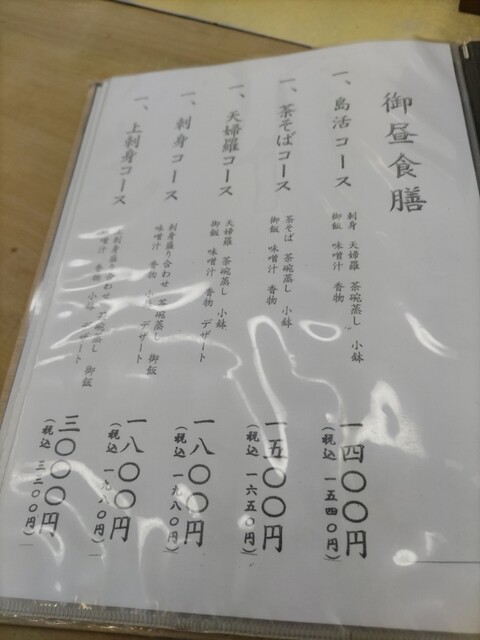 御昼食膳
一、島活コース
刺身 天婦羅 茶碗蒸し 小鉢
御飯 味噌汁 香物
一四〇〇円
(税込 一五四〇円)
一、茶そばコース
茶そば 茶碗蒸し 小鉢
御飯 味噌汁 香物
一五〇〇円
(税込 一六五〇円)
一、天婦羅コース
天婦羅 茶碗蒸し 小鉢
御飯 味噌汁 香物 デザート
一八〇〇円
(税込 一九八〇円)
一、刺身コース
刺身盛り合わせ 茶碗蒸し 御飯
味噌汁 香物 小鉢 デザート
一八〇〇円
(税込 一九八〇円)
一、上刺身コース
上刺身盛り合わせ 茶碗蒸し 御飯
味噌汁 香物 小鉢 デザート
三〇〇〇円
(税込 三三〇〇円)